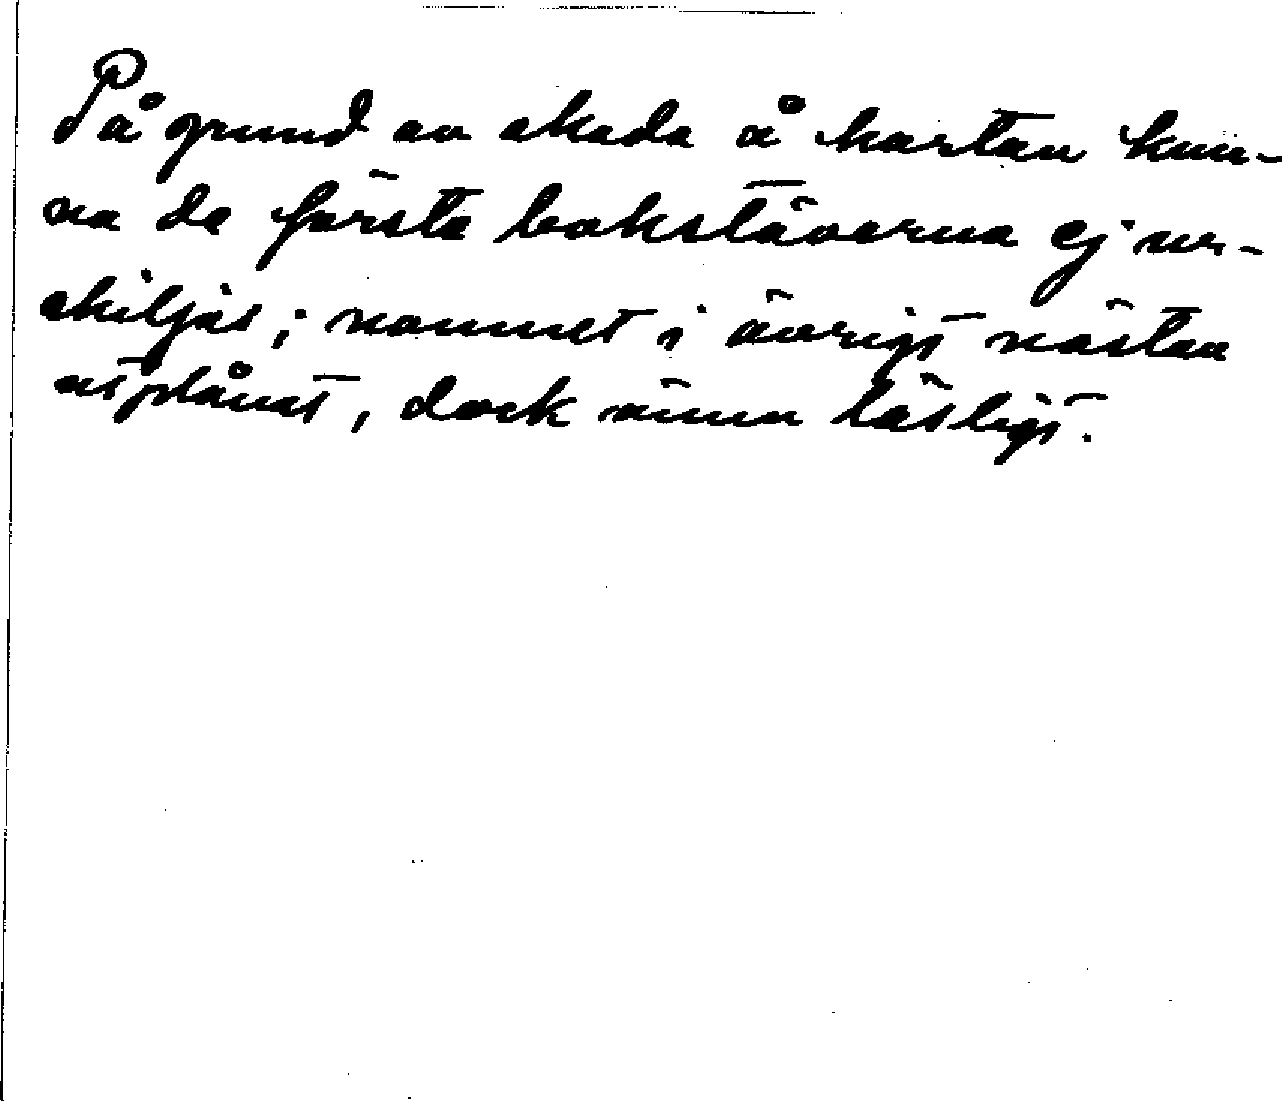 På grund av skada å kartan kun-
na de första bokstäverna ej ur-
skiljas; namnet i övrigt nästan
utplånat, dock ännu läsligt.